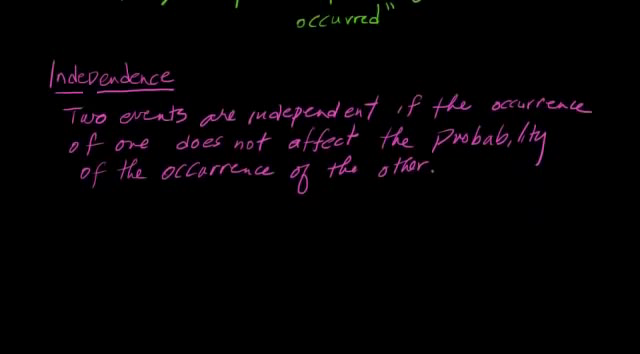 occurred"
Independence
Two events are independent if the occurrence
of one does not affect the probability
of the occurrence of the other.